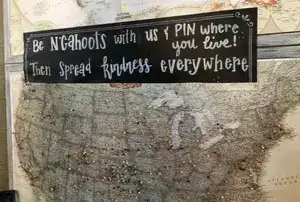 Be N'Cahoots with us & PIN where
you live!
Then Spread kindness everywhere